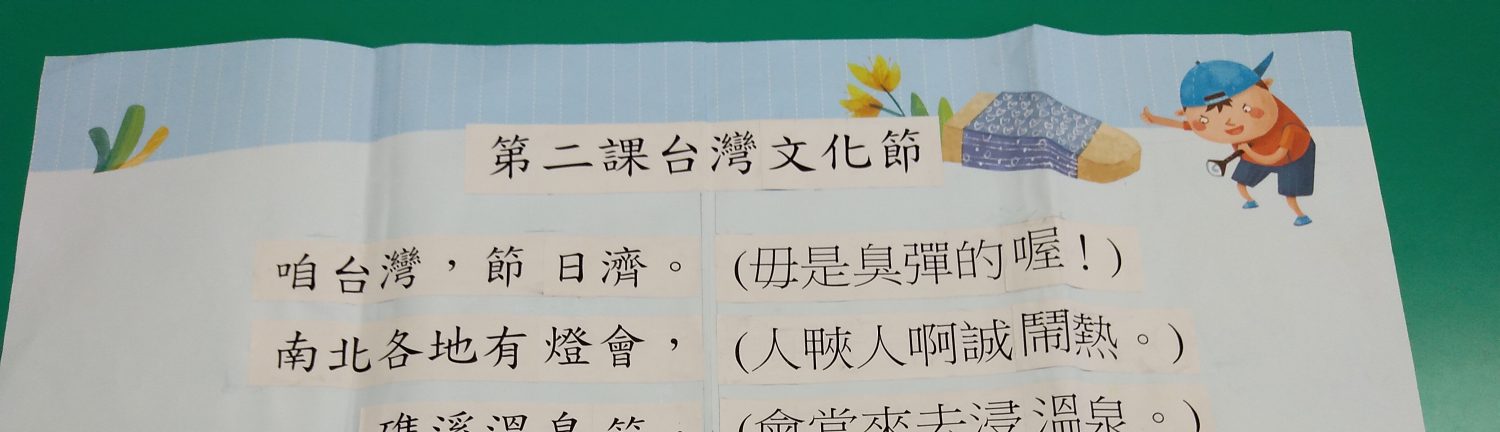 第二課台灣文化節
咱台灣，節日濟。 (毋是臭彈的喔！)
南北各地有燈會， (人𤲍人啊誠鬧熱。)
礁溪溫泉節， (會當來去浸溫泉。)